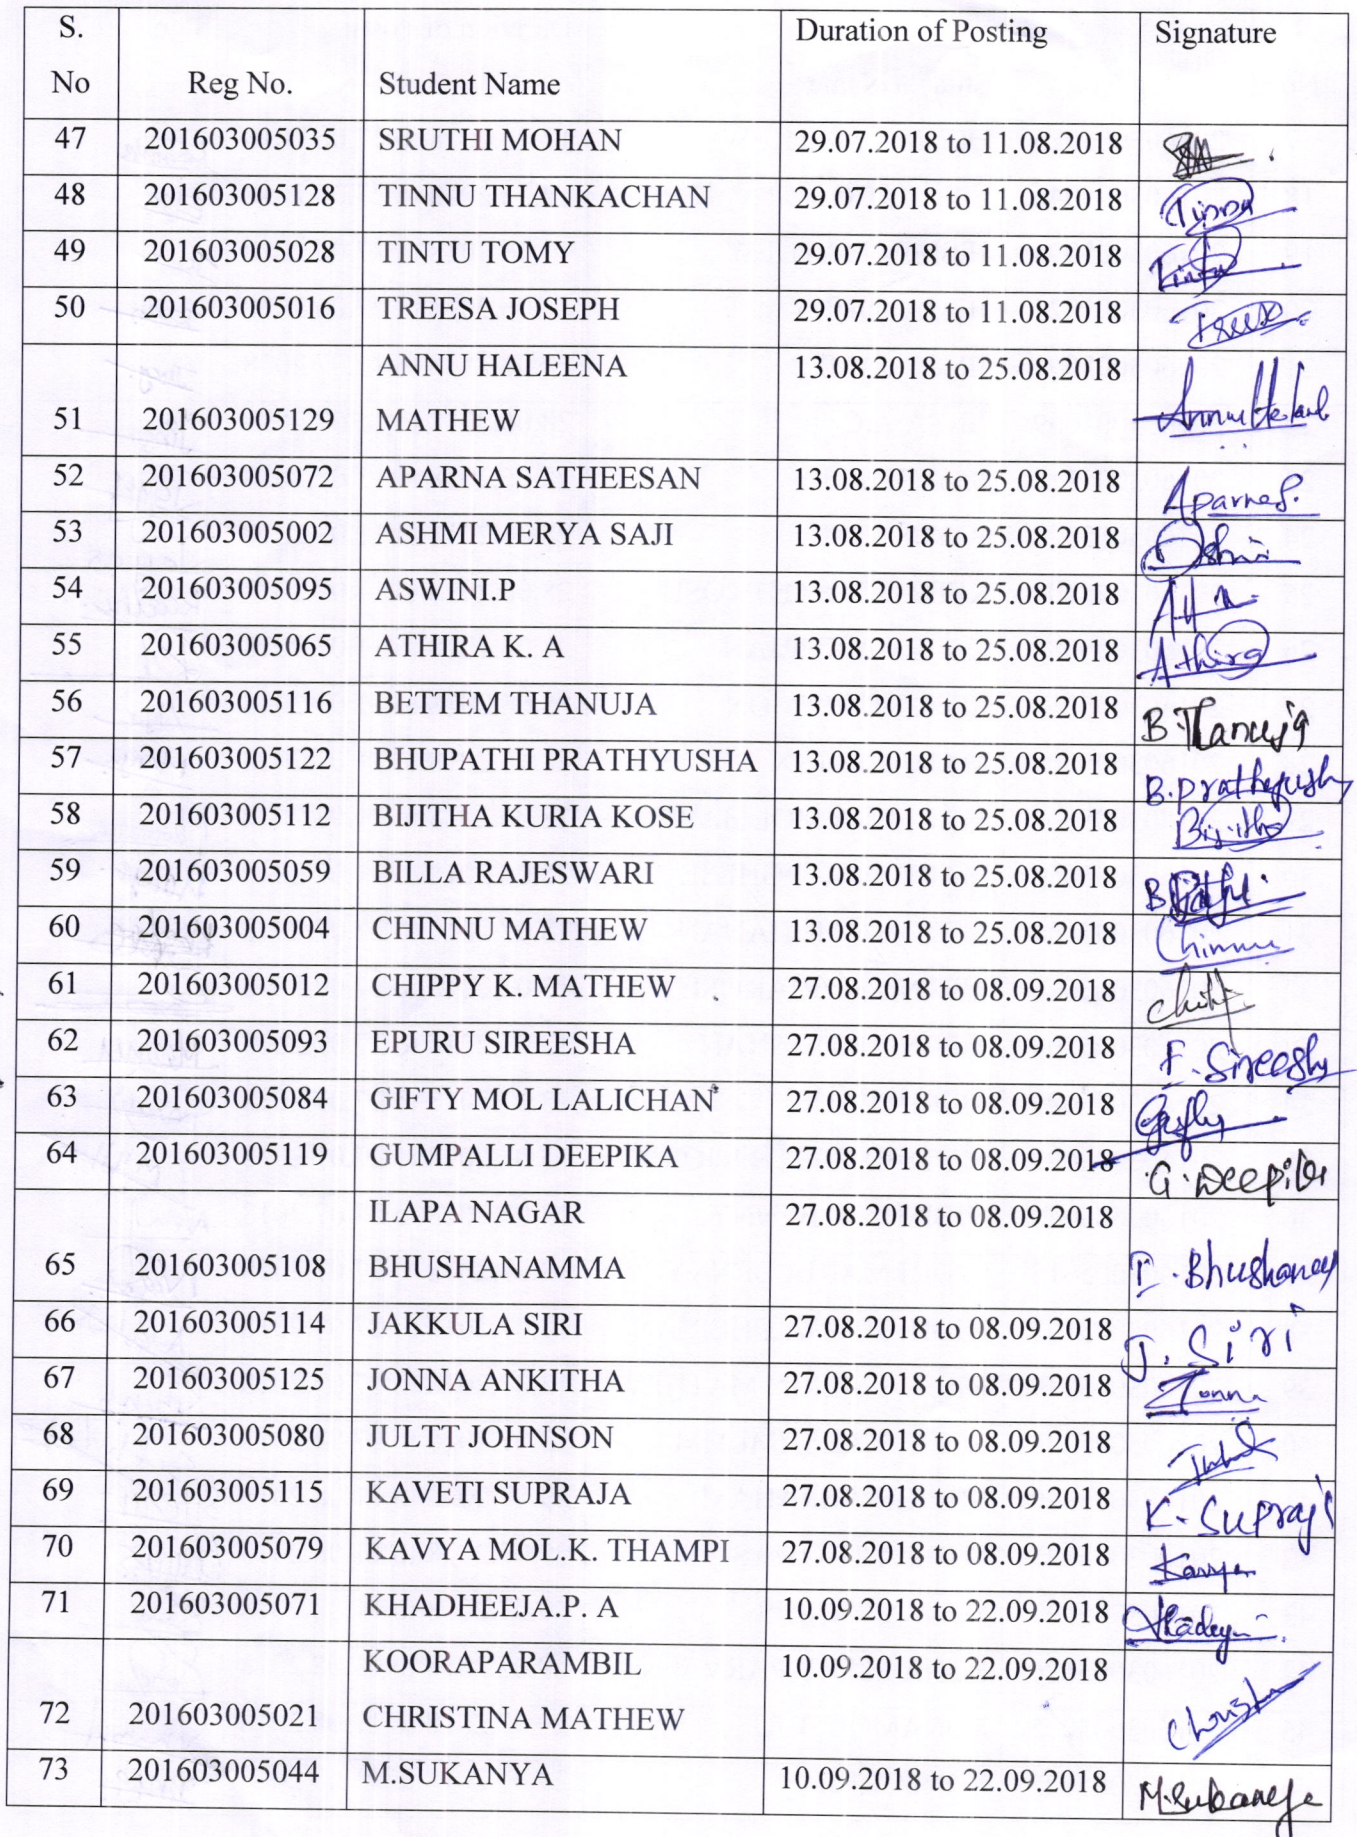 S. Duration of Posting Signature
No Reg No. Student Name
47 201603005035 SRUTHI MOHAN 29.07.2018 to 11.08.2018
48 201603005128 TINNU THANKACHAN 29.07.2018 to 11.08.2018 Tinnu
49 201603005028 TINTU TOMY 29.07.2018 to 11.08.2018 Tintu
50 201603005016 TREESA JOSEPH 29.07.2018 to 11.08.2018
ANNU HALEENA 13.08.2018 to 25.08.2018
51 201603005129 MATHEW
52 201603005072 APARNA SATHEESAN 13.08.2018 to 25.08.2018 Aparna S.
53 201603005002 ASHMI MERYA SAJI 13.08.2018 to 25.08.2018 Ashmi
54 201603005095 ASWINI.P 13.08.2018 to 25.08.2018
55 201603005065 ATHIRA K. A 13.08.2018 to 25.08.2018 Athira
56 201603005116 BETTEM THANUJA 13.08.2018 to 25.08.2018 B.Thanuja
57 201603005122 BHUPATHI PRATHYUSHA 13.08.2018 to 25.08.2018 B.Prathyusha
58 201603005112 BIJITHA KURIA KOSE 13.08.2018 to 25.08.2018 Bijitha
59 201603005059 BILLA RAJESWARI 13.08.2018 to 25.08.2018
60 201603005004 CHINNU MATHEW 13.08.2018 to 25.08.2018 Chinnu
61 201603005012 CHIPPY K. MATHEW 27.08.2018 to 08.09.2018
62 201603005093 EPURU SIREESHA 27.08.2018 to 08.09.2018 E. Sireesha
63 201603005084 GIFTY MOL LALICHAN 27.08.2018 to 08.09.2018 Gifty
64 201603005119 GUMPALLI DEEPIKA 27.08.2018 to 08.09.2018 G. Deepika
ILAPA NAGAR 27.08.2018 to 08.09.2018
65 201603005108 BHUSHANAMMA I. Bhushanam
66 201603005114 JAKKULA SIRI 27.08.2018 to 08.09.2018 J. Siri
67 201603005125 JONNA ANKITHA 27.08.2018 to 08.09.2018 Jonna
68 201603005080 JULTT JOHNSON 27.08.2018 to 08.09.2018
69 201603005115 KAVETI SUPRAJA 27.08.2018 to 08.09.2018 K. Supraja
70 201603005079 KAVYA MOL.K. THAMPI 27.08.2018 to 08.09.2018 Kavya
71 201603005071 KHADHEEJA.P. A 10.09.2018 to 22.09.2018
KOORAPARAMBIL 10.09.2018 to 22.09.2018
72 201603005021 CHRISTINA MATHEW
73 201603005044 M.SUKANYA 10.09.2018 to 22.09.2018 M.Sukanya